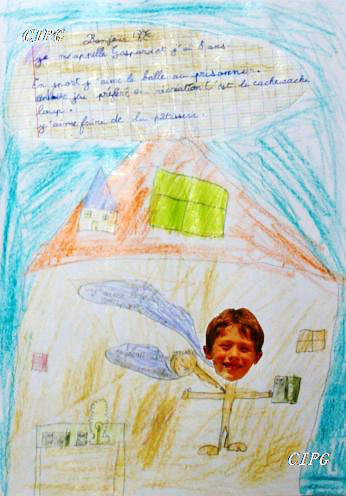 CIPG
Bonjour
je m'appelle Gaspard et j'ai 8 ans.
En sport j'aime la balle au prisonnier.
jeu préféré en récréation c'est le cache cache
loup.
j'aime faire de la pâtisserie.
j'aime
CIPG